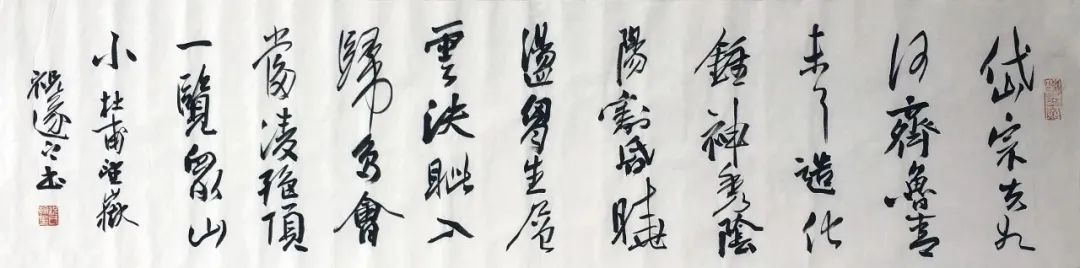 岱宗夫如
何齊魯青
未了造化
鍾神秀陰
陽割昏曉
盪胷生層
雲決眦入
歸鳥會
當凌絕頂
一覽眾山
小 杜甫望嶽
書